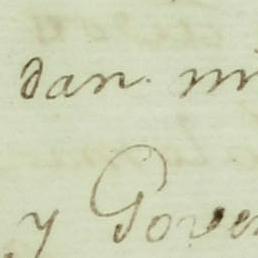 dan. ni
y Gover